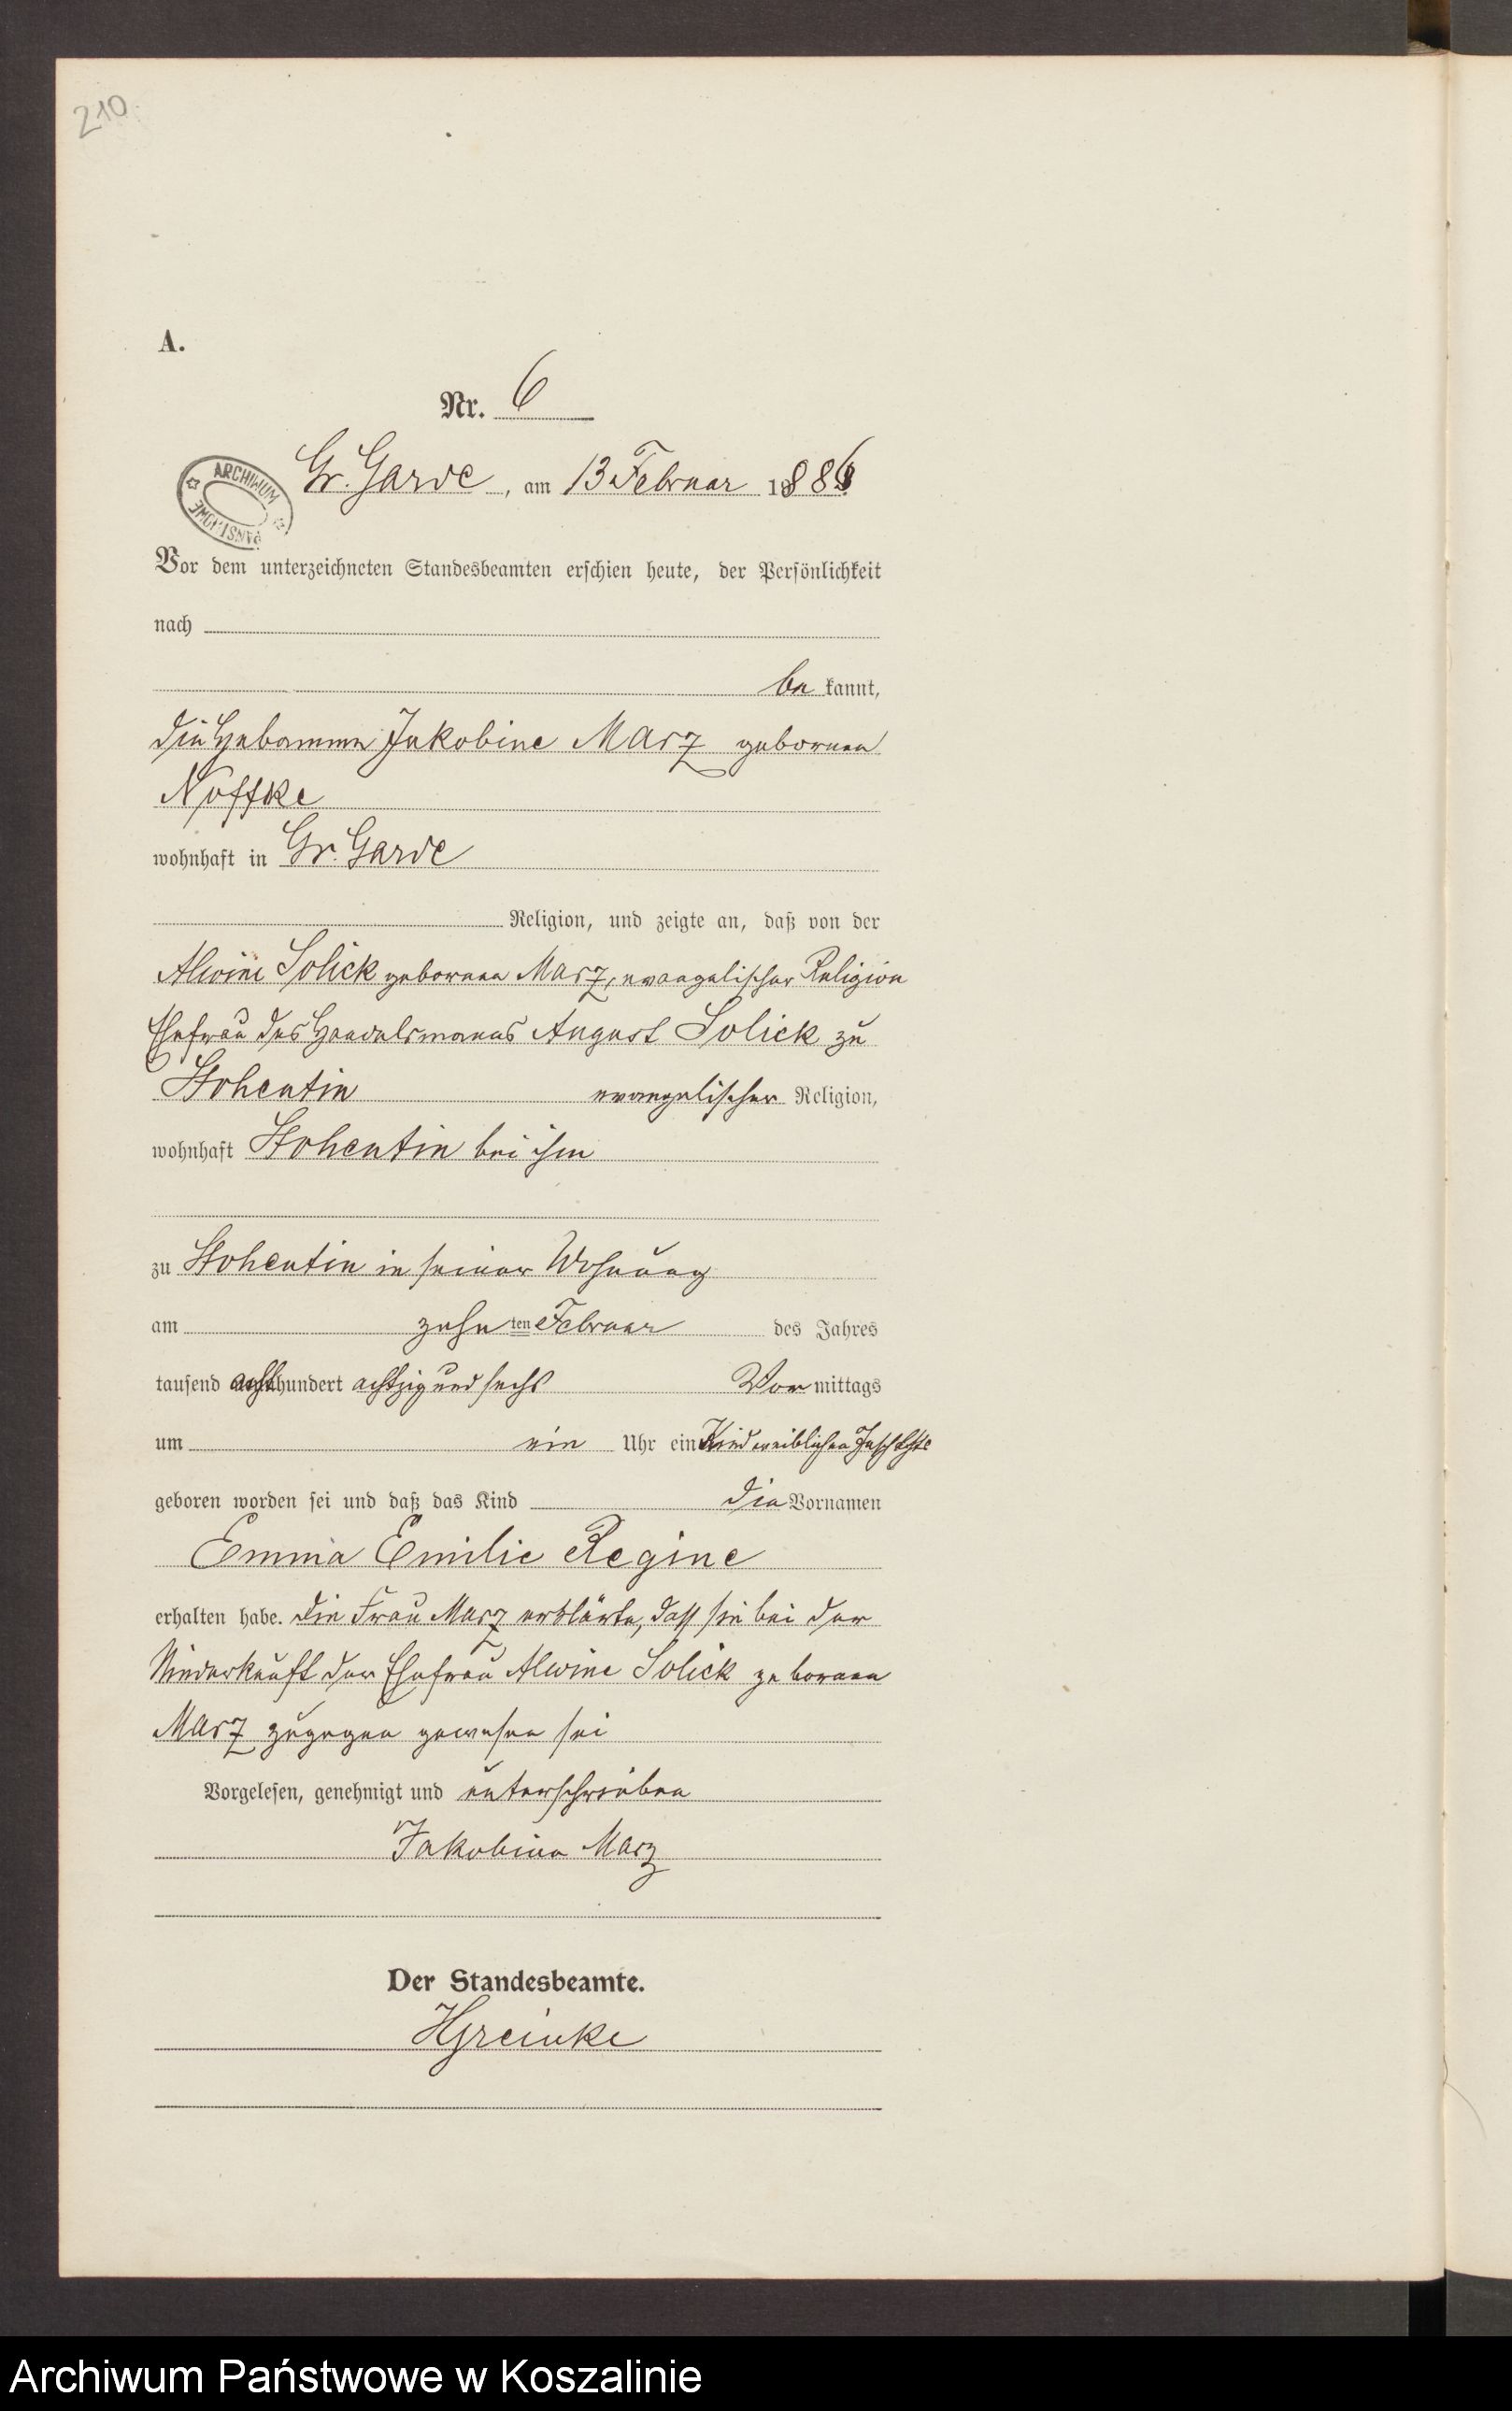 210.
A.
Nr. 6
Gr. Garde, am 13 Februar 1886
ARCHIWUM PAŃSTWOWE
Vor dem unterzeichneten Standesbeamten erschien heute, der Persönlichkeit
nach
be kannt,
die Hebamme Jakobine Marz geborene
Noffke
wohnhaft in Gr. Garde
Religion, und zeigte an, daß von der
Alwine Solick geborenen Marz, evangelischer Religion
Ehefrau des Handelsmanns August Solick zu
Stohentin evangelischer Religion,
wohnhaft Stohentin bei ihm
zu Stohentin in seiner Wohnung
am zehn ten Februar des Jahres
tausend achthundert achtzig und sechs Vor mittags
um ein Uhr ein Kind weiblichen Geschlechts
geboren worden sei und daß das Kind die Vornamen
Emma Emilie Regine
erhalten habe. Die Frau Marz erklärte, dass sie bei der
Niederkunft der Ehefrau Alwine Solick geborenen
Marz zugegen gewesen sei
Vorgelesen, genehmigt und unterschrieben
Jakobine Marz
Der Standesbeamte.
HGreinke
Archiwum Państwowe w Koszalinie